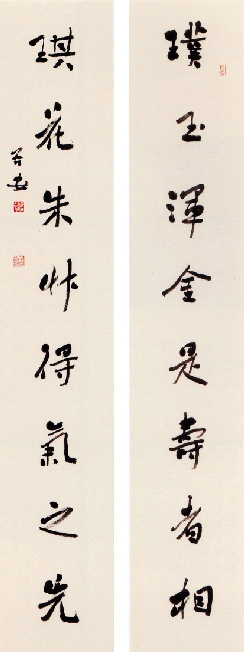 璞玉渾金是壽者相
琪花朱艸得氣之先